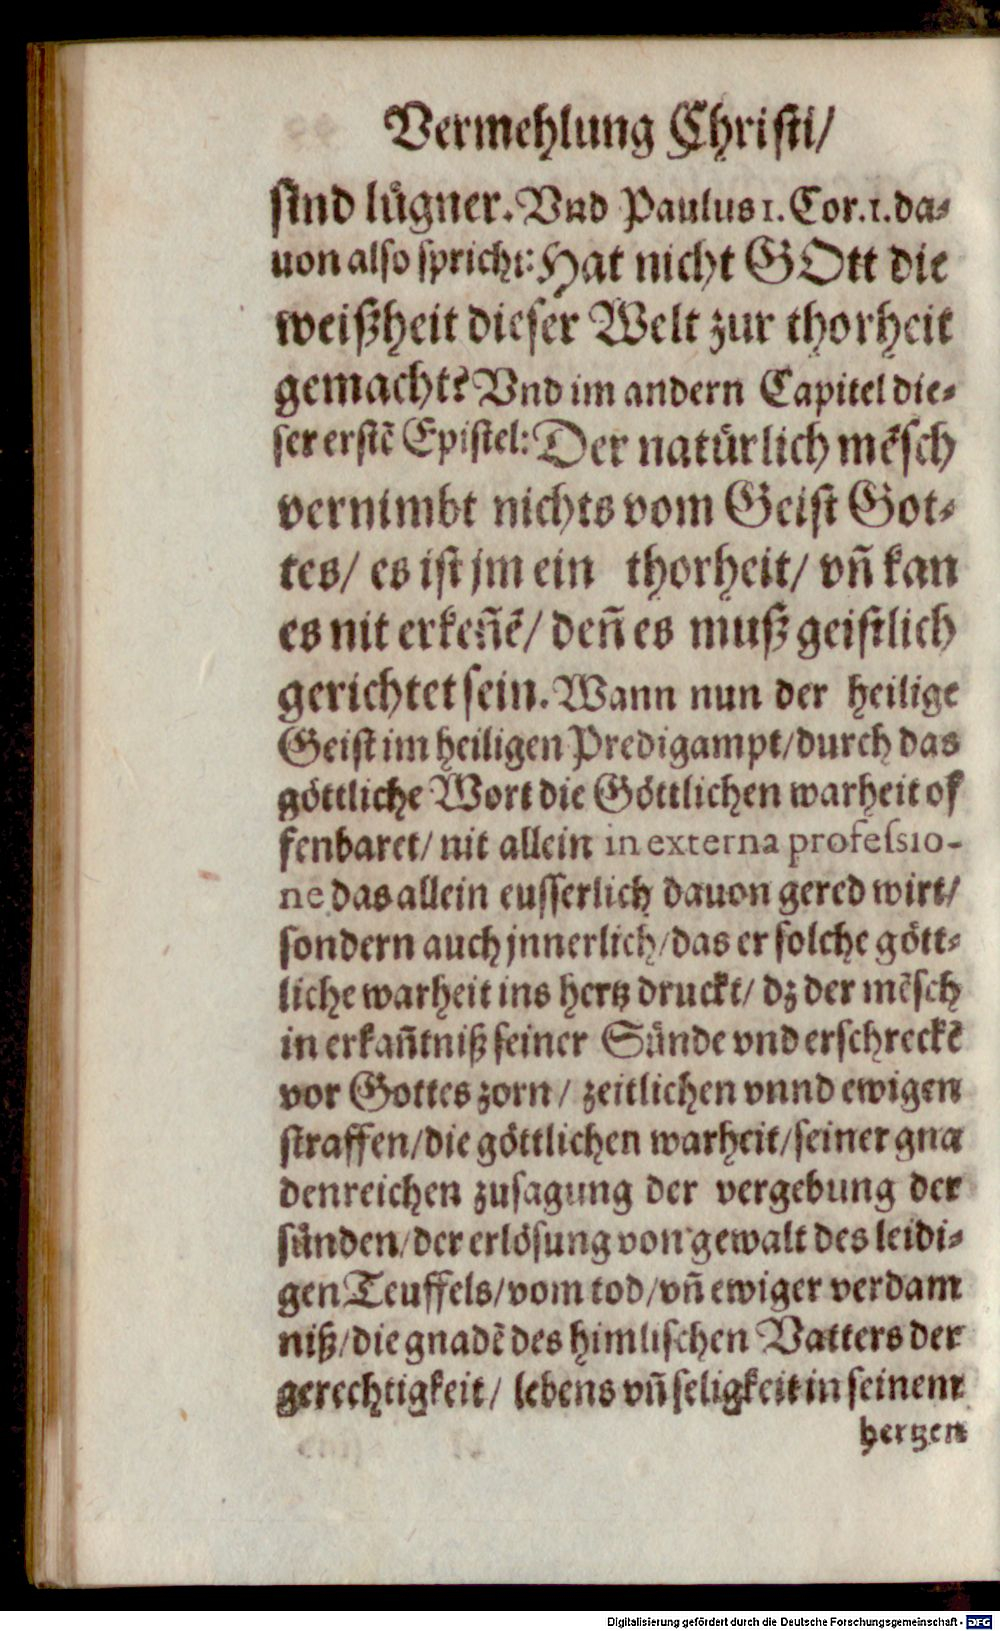 Vermehlung Christi/
sind lügner. Vnd Paulus 1. Cor. 1. da⸗
uon also spricht: Hat nicht GOtt die
weißheit dieser Welt zur thorheit
gemacht? Vnd im andern Capitel die⸗
ser erstē Epistel: Der natürlich mēsch
vernimbt nichts vom Geist Got⸗
tes/ es ist jm ein thorheit/ vñ kan
es nit erkeñē/ deñ es muß geistlich
gerichtet sein. Wann nun der heilige
Geist im heiligen Predigampt/ durch das
göttliche Wort die Göttlichen warheit of
fenbaret/ nit allein in externa professio-
ne das allein eusserlich dauon gered wirt/
sondern auch jnnerlich/ das er solche gött⸗
liche warheit ins hertz druckt/ dz der mēsch
in erkañtniß seiner Sünde vnd erschreckē
vor Gottes zorn/ zeitlichen vnnd ewigen
straffen/ die göttlichen warheit/ seiner gna
denreichen zusagung der vergebung der
sünden/ der erlösung von gewalt des leidi⸗
gen Teuffels/ vom tod/ vñ ewiger verdam
niß/ die gnadē des himlischen Vatters der
gerechtigkeit/ lebens vñ seligkeit in seinem
hertzen
Digitalisierung gefördert durch die Deutsche Forschungsgemeinschaft - DFG